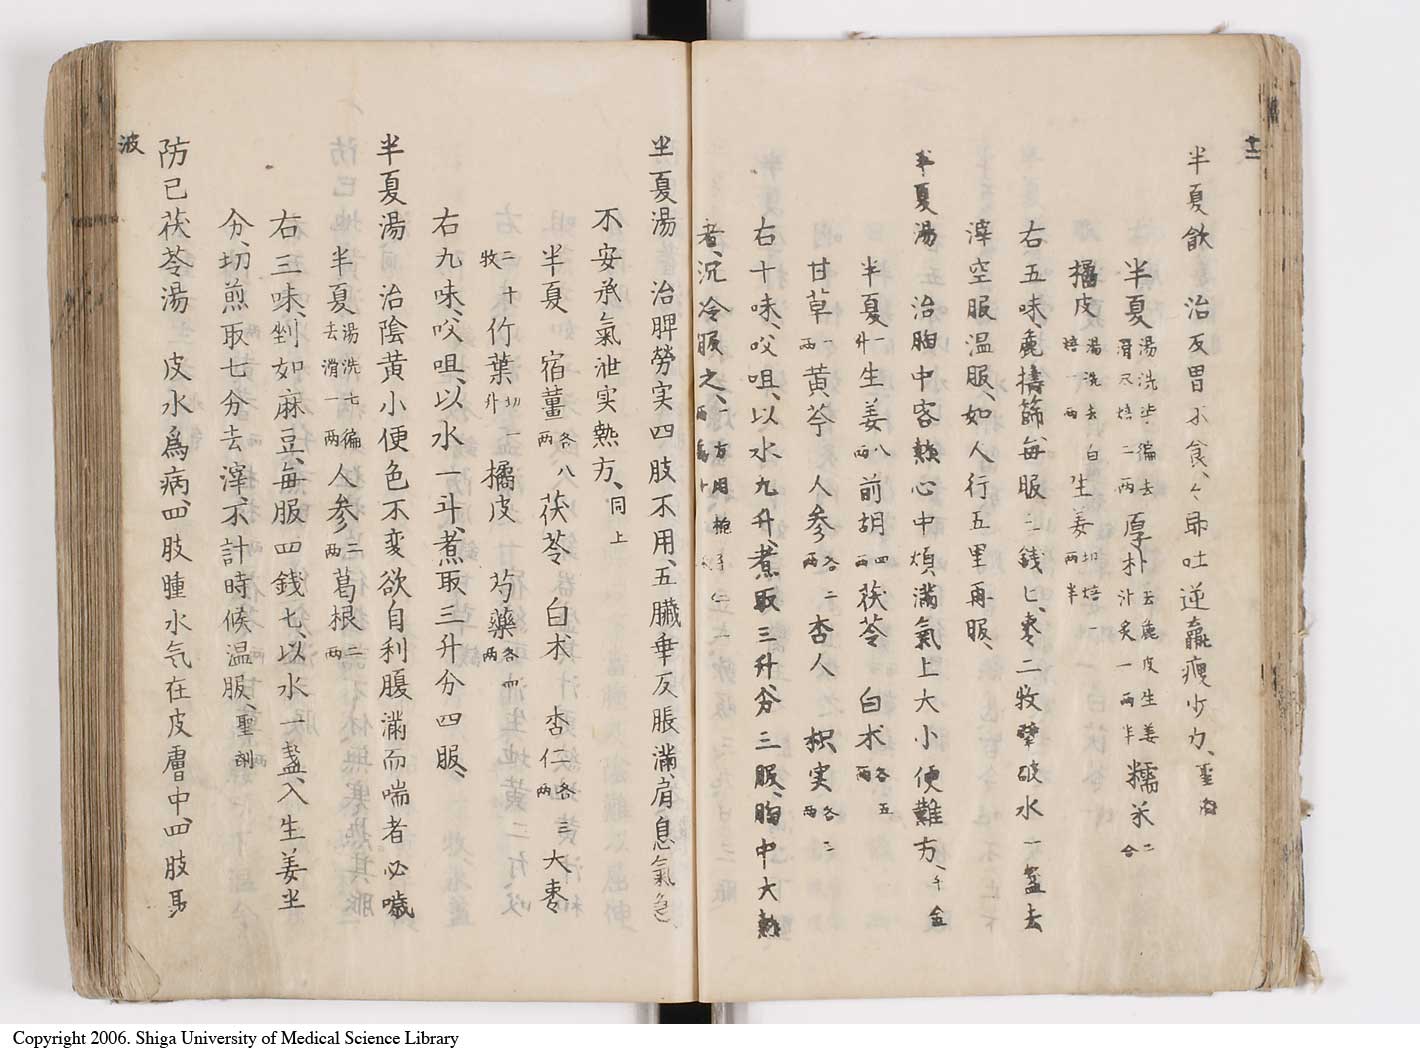 十二
半夏飲 治反胃不食、々即吐逆羸瘦少力、聖
半夏 湯洗 徧去滑尺焙二兩 厚朴 去麁皮生姜汁炙一兩半 糯米 二合
橘皮 湯洗去白焙一兩 生姜 切焙一兩半
右五味、麁擣篩毎服三錢匕、棗二枚擘破水一盞去
滓空服温服、如人行五里再服、
半夏湯 治胸中客熱心中煩滿氣上大小便難方、千金
半夏 一升 生姜 八兩 前胡 四兩 茯苓 白朮 各五兩
甘草 一兩 黄芩 人参 各二兩 杏人 枳実 各三兩
右十味、㕮咀、以水九升、煮取三升、分三服、胸中大熱
者、沉冷服之、一方用梔子
半夏湯 治脾勞実四肢不用、五臓乖反脹滿、肩息氣急、
不安承氣泄実熱方、同上
半夏 宿薑 各八兩 茯苓 白朮 杏仁 各三兩 大棗
二十枚 竹葉 切一升 橘皮 芍藥 各四兩
右九味、㕮咀、以水一斗、煮取三升、分四服、
半夏湯 治陰黄小便色不変欲自利腹滿而喘者必噦
半夏 湯洗七徧去滑一兩 人参 三兩 葛根 二兩
右三味、剉如麻豆、毎服四錢七、以水一盞、入生姜半
分、切煎取七分去滓、不計時候温服、聖剤
防已茯苓湯 皮水為病、四肢腫水气在皮膚中、四肢
波